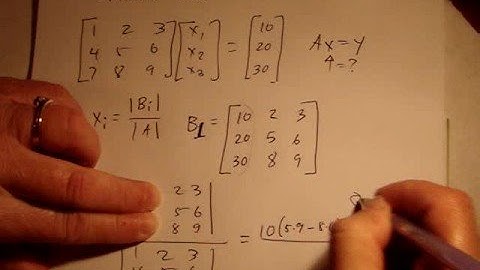 [1 2 3; 4 5 6; 7 8 9] [x₁; x₂; x₃] = [10; 20; 30]   Ax = y
4 = ?
xᵢ = |Bᵢ| / |A|   B₁ = [10 2 3; 20 5 6; 30 8 9]
2 3
5 6
8 9
= 10(5·9 – 5·
1 2 3
5 6